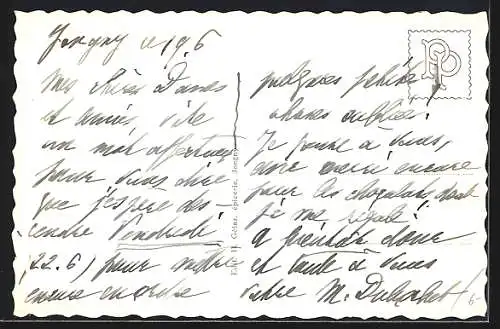 Jongny le 19.6
Mes chères Dames
et amies, vite
un mot affectueux
pour vous dire
que j'espère des-
cendre Vendredi
(22.6) pour mettre
encore en ordre
Edit. H. Géhaz, épicerie, Jongny
quelques petites
choses oubliées!
Je pense à vous,
avec merci encore
pour les chocolats dont
je me régale!
à bientôt donc
et toute à vous
votre M.